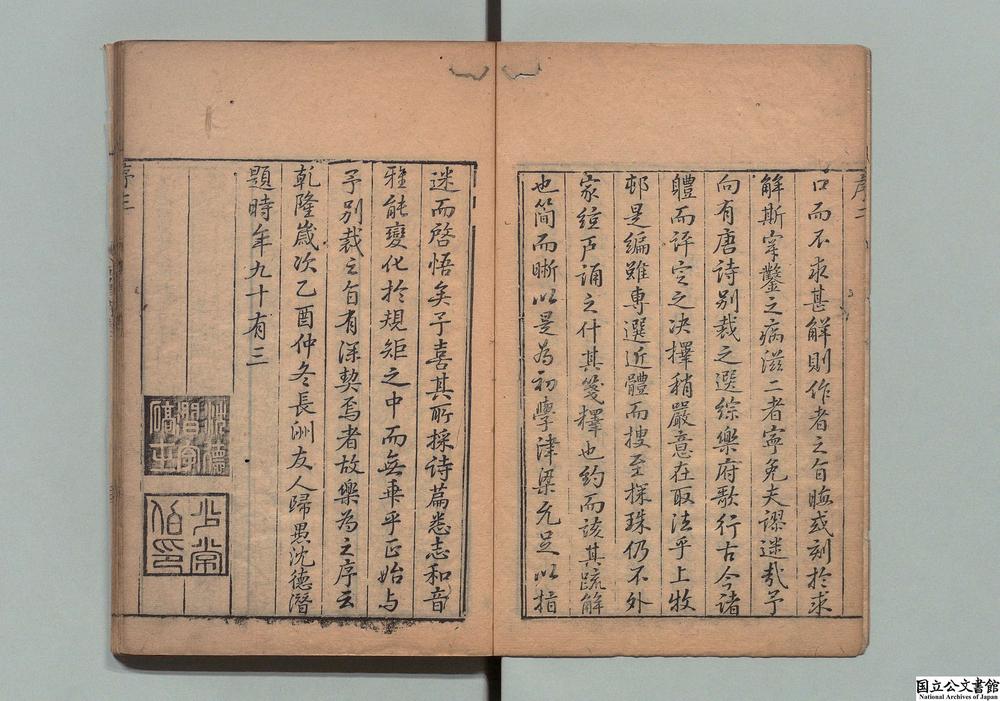 序二
口而不求甚解則作者之旨晦或刻於求
解斯穿鑿之病滋二者寧免夫謬迷哉予
向有唐詩別裁之選綜樂府歌行古今諸
體而評定之决擇稍嚴意在取法乎上牧
邨是編雖専選近體而搜玊探珠仍不外
家絃戶誦之什其箋釋也約而該其疏解
也簡而晰以是為初學津梁允足以指
迷而啓悟矣予喜其所採詩篇悉志和音
雅能變化於規矩之中而無乖乎正始與
予別裁之旨有深契焉者故樂為之序云
乾隆歲次乙酉仲冬長洲友人歸愚沈德潛
題時年九十有三
沈德
潛字
碻士
序三
国立公文書館
National Archives of Japan